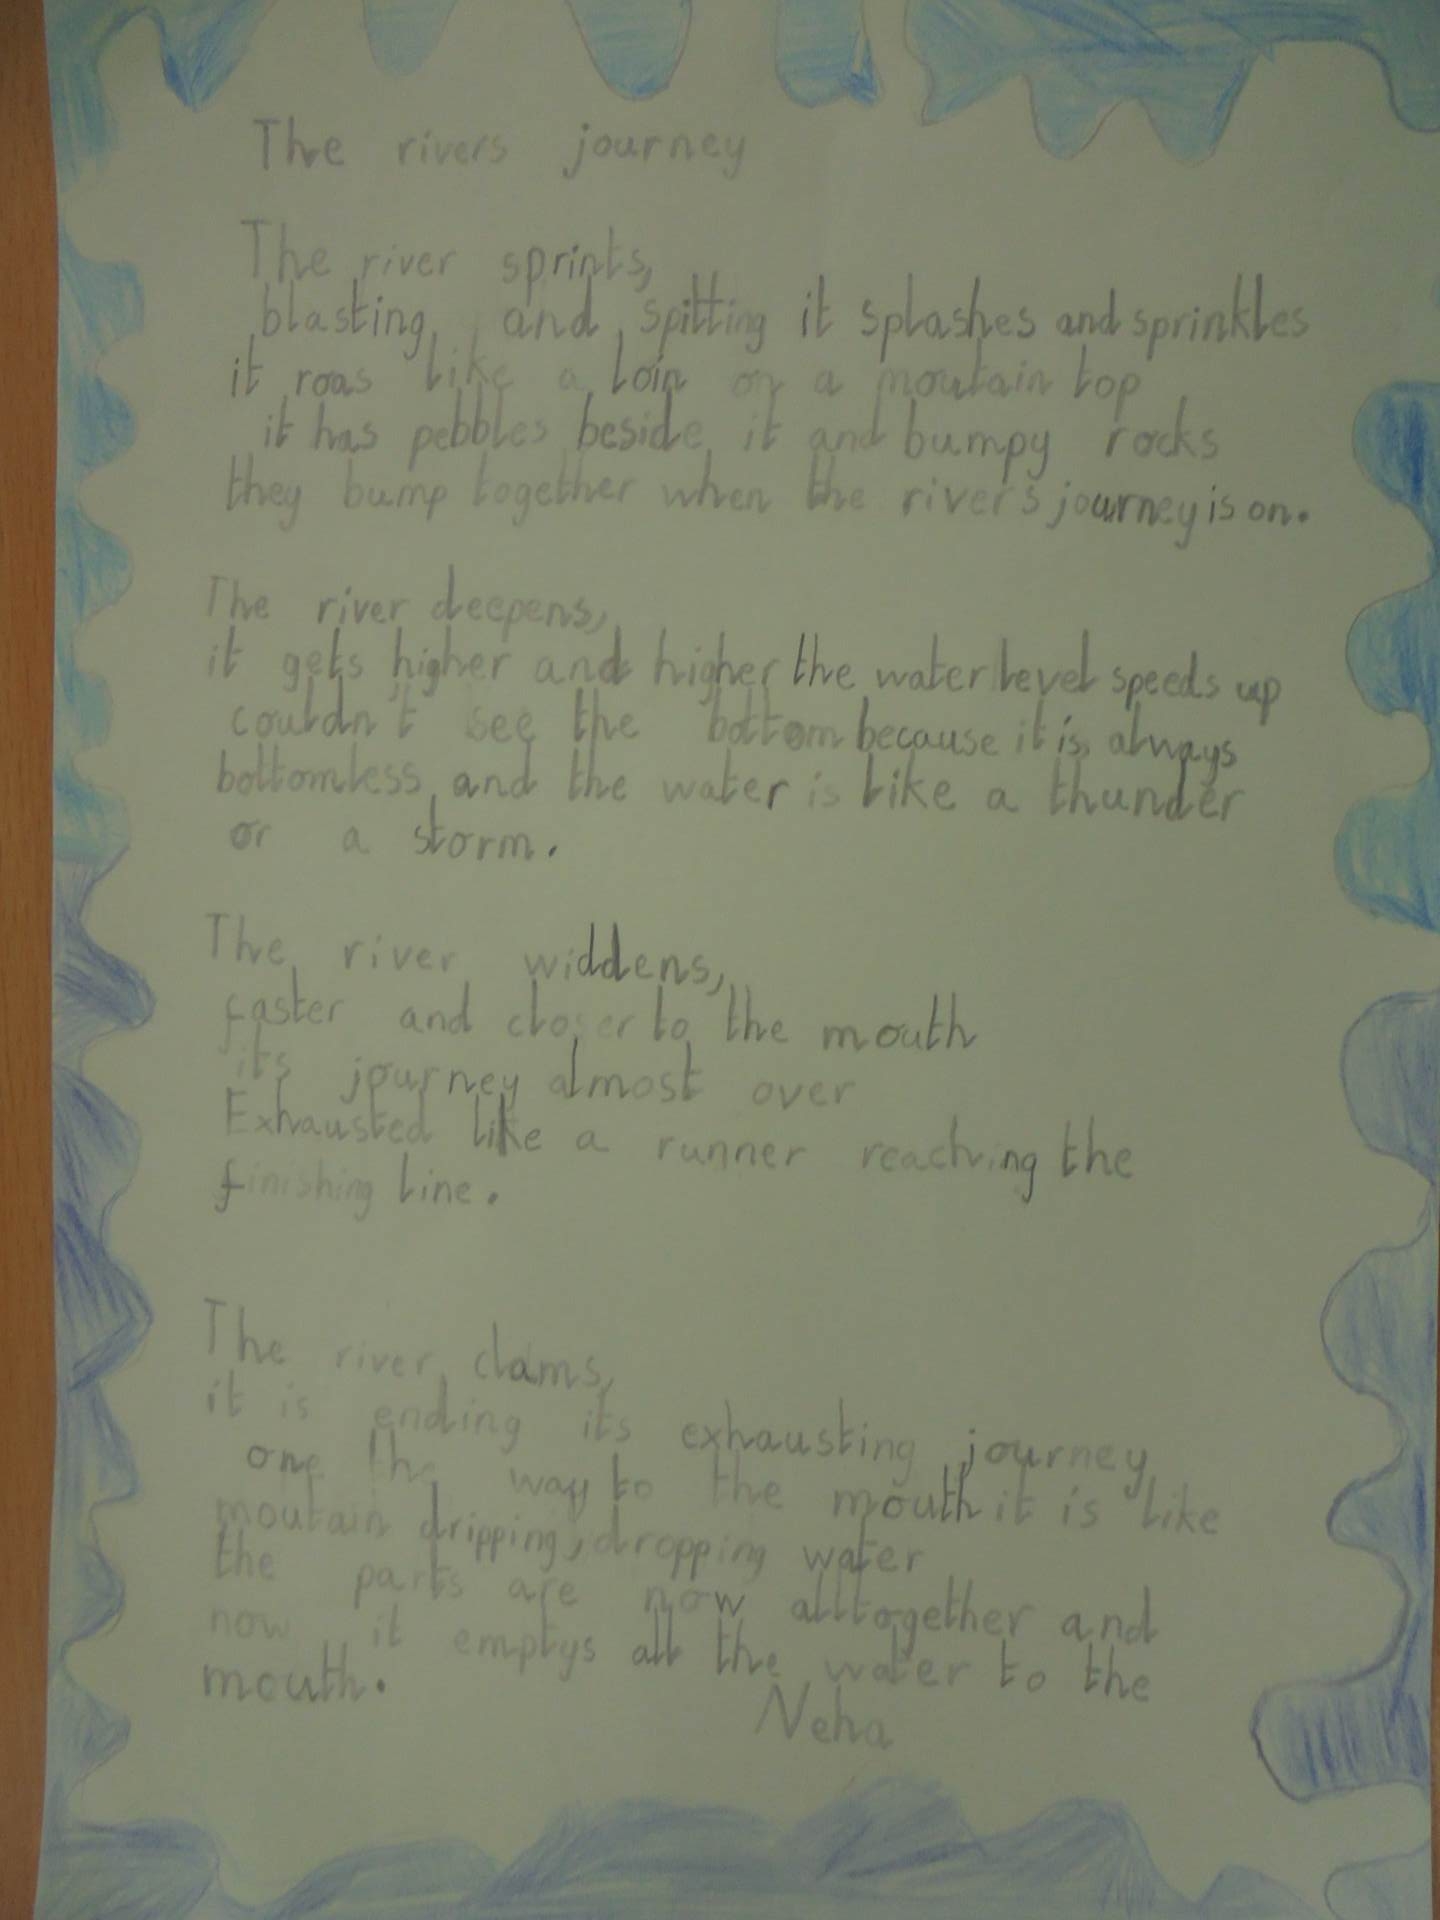 The rivers journey
The river sprints,
blasting and spitting it splashes and sprinkles
it roas like a loin on a moutain top
it has pebbles beside it and bumpy rocks
they bump together when the river's journey is on.
The river deepens,
it gets higher and higher the water level speeds up
couldn't see the bottom because it is always
bottomless and the water is like a thunder
or a storm.
The river widdens,
faster and closer to the mouth
its journey almost over
Exhausted like a runner reaching the
finishing line.
The river clams,
it is ending its exhausting journey
one the way to the mouth it is like
moutain dripping, dropping water
the parts are now alltogether and
now it emptys all the water to the
mouth.
Neha